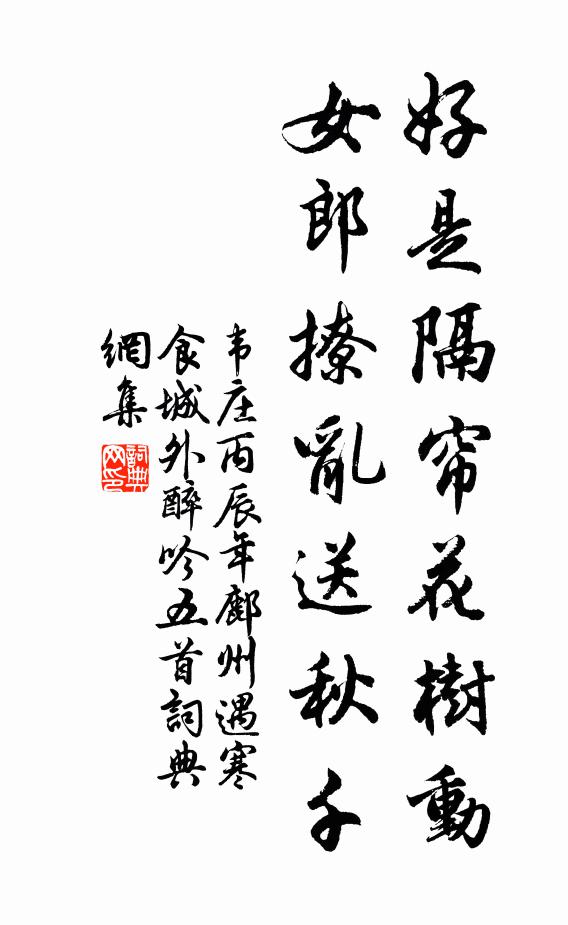 好是隔帘花樹動
女郎撩亂送秋千
韦庄丙辰年鄜州遇寒
食城外醉吟五首詞典
網集
詞典
网印